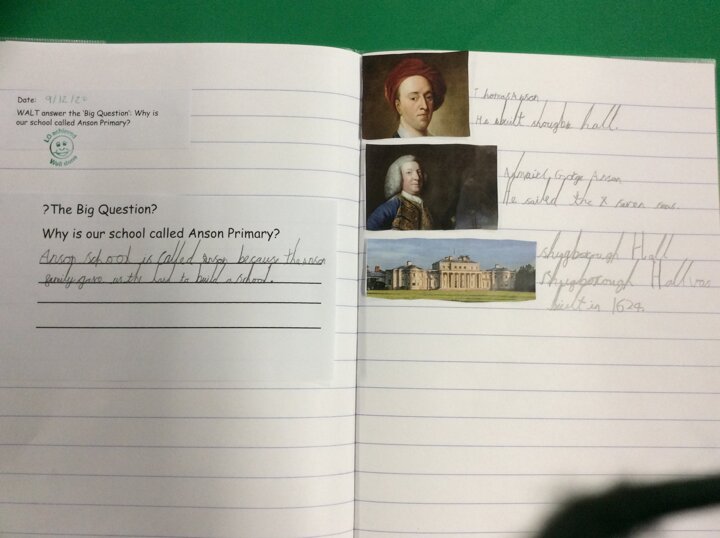 Date: 9/12/20
WALT answer the 'Big Question': Why is
our school called Anson Primary?
LO achieved
Well done
?The Big Question?
Why is our school called Anson Primary?
Anson school is called anson because the anson
family gave us the land to build a school.
Thomas Anson
He built hall.
George Anson
He sailed the seven seas.
Hall
Hall was
built in 1624.